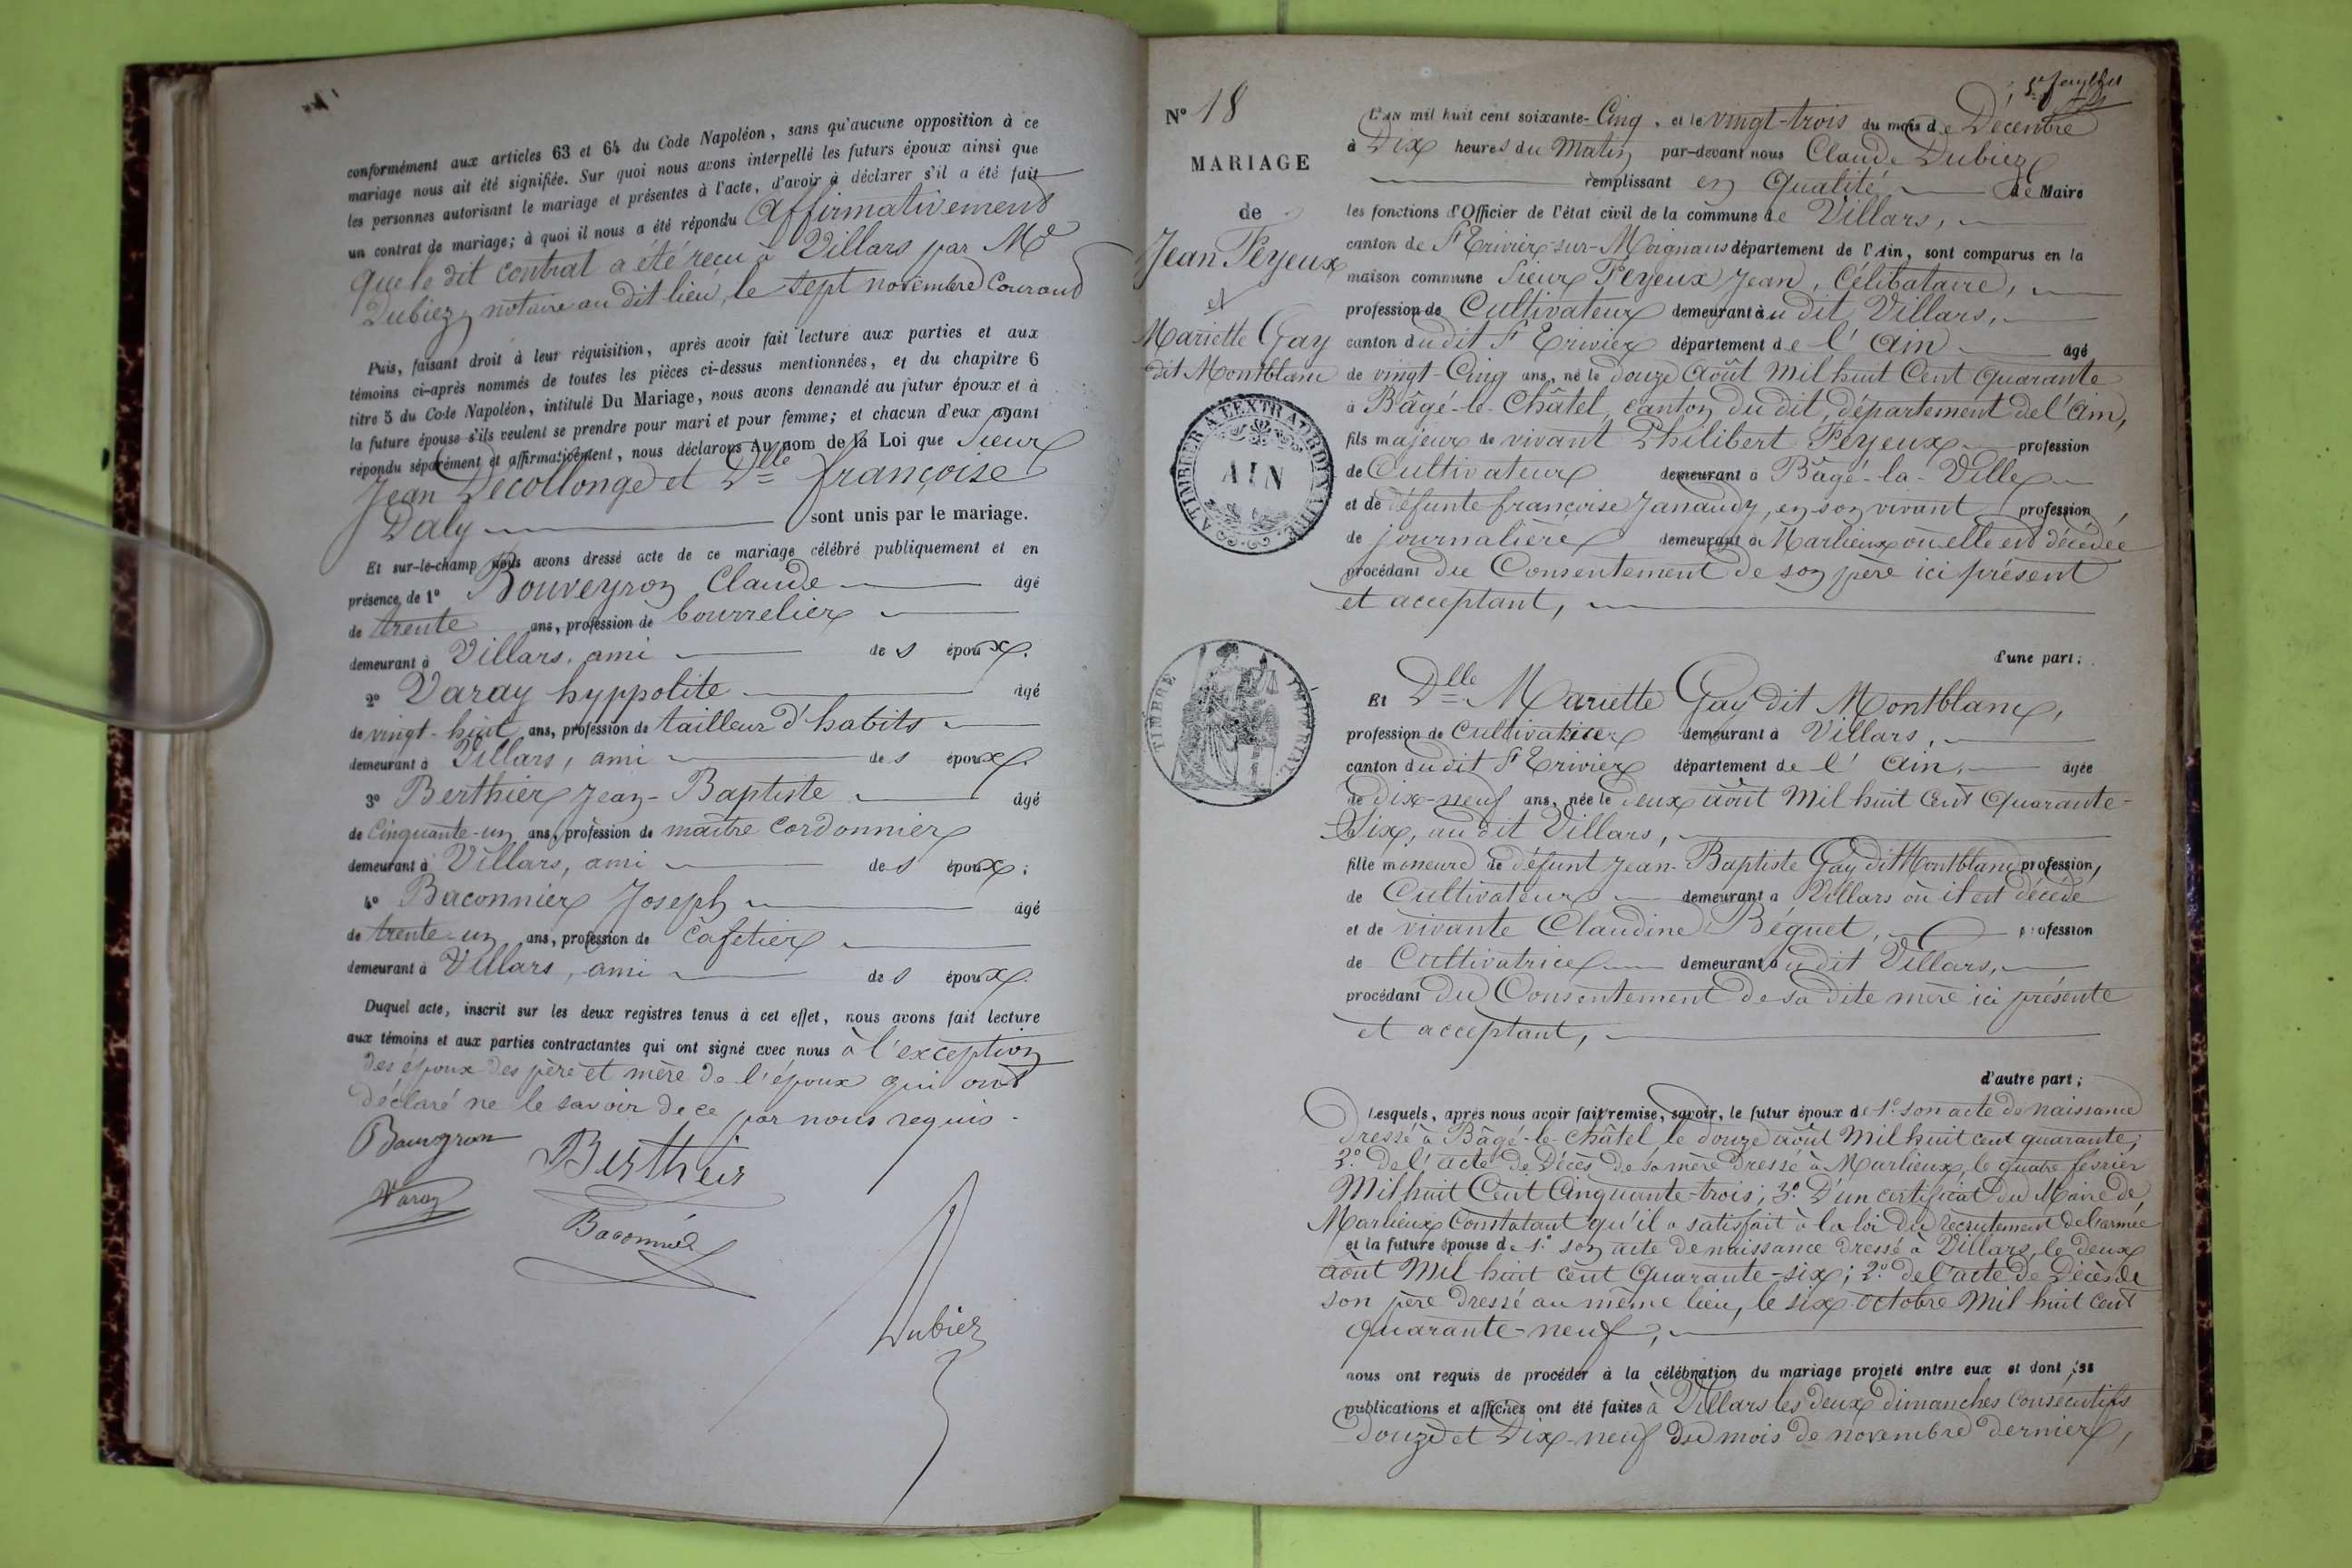 conformément aux articles 63 et 64 du Code Napoléon, sans qu'aucune opposition à ce
mariage nous ait été signifiée. Sur quoi nous avons interpellé les futurs époux ainsi que
les personnes autorisant le mariage et présentes à l'acte, d'avoir à déclarer s'il a été fait
un contrat de mariage; à quoi il nous a été répondu affirmativement
que le dit contrat a été reçu à Villars par Me
Dubiez notaire au dit lieu, le sept novembre Courant
Puis, faisant droit à leur réquisition, après avoir fait lecture aux parties et aux
témoins ci-après nommés de toutes les pièces ci-dessus mentionnées, et du chapitre 6
titre 5 du Code Napoléon, intitulé Du Mariage, nous avons demandé au futur époux et à
la future épouse s'ils veulent se prendre pour mari et pour femme; et chacun d'eux ayant
répondu séparément et affirmativement, nous déclarons Au nom de la Loi que Sieur
Jean Decollonge et Dlle françoise
Daly sont unis par le mariage.
Et sur-le-champ nous avons dressé acte de ce mariage célébré publiquement et en
présence de 1° Bouveyron Claude âgé
de trente ans, profession de bourrelier
demeurant à Villars, ami de s époux.
2° Varay hyppolite âgé
de vingt-huit ans, profession de tailleur d'habits
demeurant à Villars, ami de s époux.
3° Berthier Jean-Baptiste âgé
de Cinquante-un ans, profession de maître cordonnier
demeurant à Villars, ami de s époux;
4° Baconnier Joseph âgé
de trente-un ans, profession de cafetier
demeurant à Villars, ami de s époux.
Duquel acte, inscrit sur les deux registres tenus à cet effet, nous avons fait lecture
aux témoins et aux parties contractantes qui ont signé avec nous à l'exception
des époux des père et mère de l'époux qui ont
déclaré ne le savoir de ce par nous requis.
Bouvyron Berthier
Varay
Baconnié
Dubiez
N° 18
MARIAGE
de
Jean Feyeux
et
Mariette Gay
dit Montblanc
A TIMBRER A L'EXTRAORDINAIRE
AIN
TIMBRE IMPERIAL
L'AN mil huit cent soixante-Cinq, et le vingt-trois du mois de Décembre
à Dix heures du Matin par-devant nous Claude Dubiez
remplissant en Qualité de Maire
les fonctions d'Officier de l'état civil de la commune de Villars,
canton de St Trivier-sur-Moignans département de l'Ain, sont comparus en la
maison commune Sieur Feyeux Jean, Célibataire,
profession de Cultivateur demeurant au dit Villars,
canton du dit St Trivier département de l'Ain âgé
de vingt-Cinq ans, né le douze Août Mil huit Cent Quarante
à Bâgé-le-Châtel, canton du dit, département de l'Ain,
fils majeur de vivant Philibert Feyeux profession
de Cultivateur demeurant à Bâgé-la-Ville
et de défunte françoise Janaudy, en son vivant profession
de journalière demeurant à Marlieux où elle est décédée
procédant du Consentement de son père ici présent
et acceptant,
d'une part;
Et Dlle Mariette Gay dit Montblanc,
profession de Cultivatrice demeurant à Villars,
canton du dit St Trivier département de l'Ain, âgée
de dix-neuf ans, née le deux août Mil huit Cent Quarante-
Six, au dit Villars,
fille mineure de défunt Jean-Baptiste Gay dit Montblanc profession,
de Cultivateur demeurant à Villars où il est décédé
et de vivante Claudine Béguet, profession
de Cultivatrice demeurant au dit Villars,
procédant du Consentement de sa dite mère ici présente
et acceptant,
d'autre part;
Lesquels, après nous avoir fait remise, savoir, le futur époux de 1° son acte de naissance
dressé à Bâgé-le-Châtel le douze août Mil huit cent quarante;
2° de l'acte de Décès de sa mère dressé à Marlieux, le quatre février
Mil huit Cent Cinquante-trois; 3° D'un certificat du Maire de
Marlieux Constatant qu'il a satisfait à la loi du recrutement de l'armée
et la future épouse de 1° son acte de naissance dressé à Villars, le deux
août Mil huit cent Quarante-six; 2° de l'acte de Décès de
son père dressé au même lieu, le six octobre Mil huit Cent
quarante-neuf,
nous ont requis de procéder à la célébration du mariage projeté entre eux et dont les
publications et affiches ont été faites à Villars les deux dimanches consécutifs
douze et Dix-neuf du mois de novembre dernier,